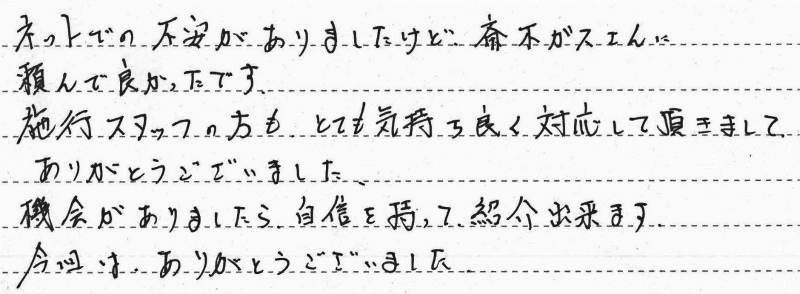 ネットでの不安がありましたけど、斎木ガスさんに
頼んで良かったです。
施行スタッフの方も、とても気持ち良く対応して頂きまして、
ありがとうございました、
機会がありましたら、自信を持って、紹介出来ます。
今回は、ありがとうございました。